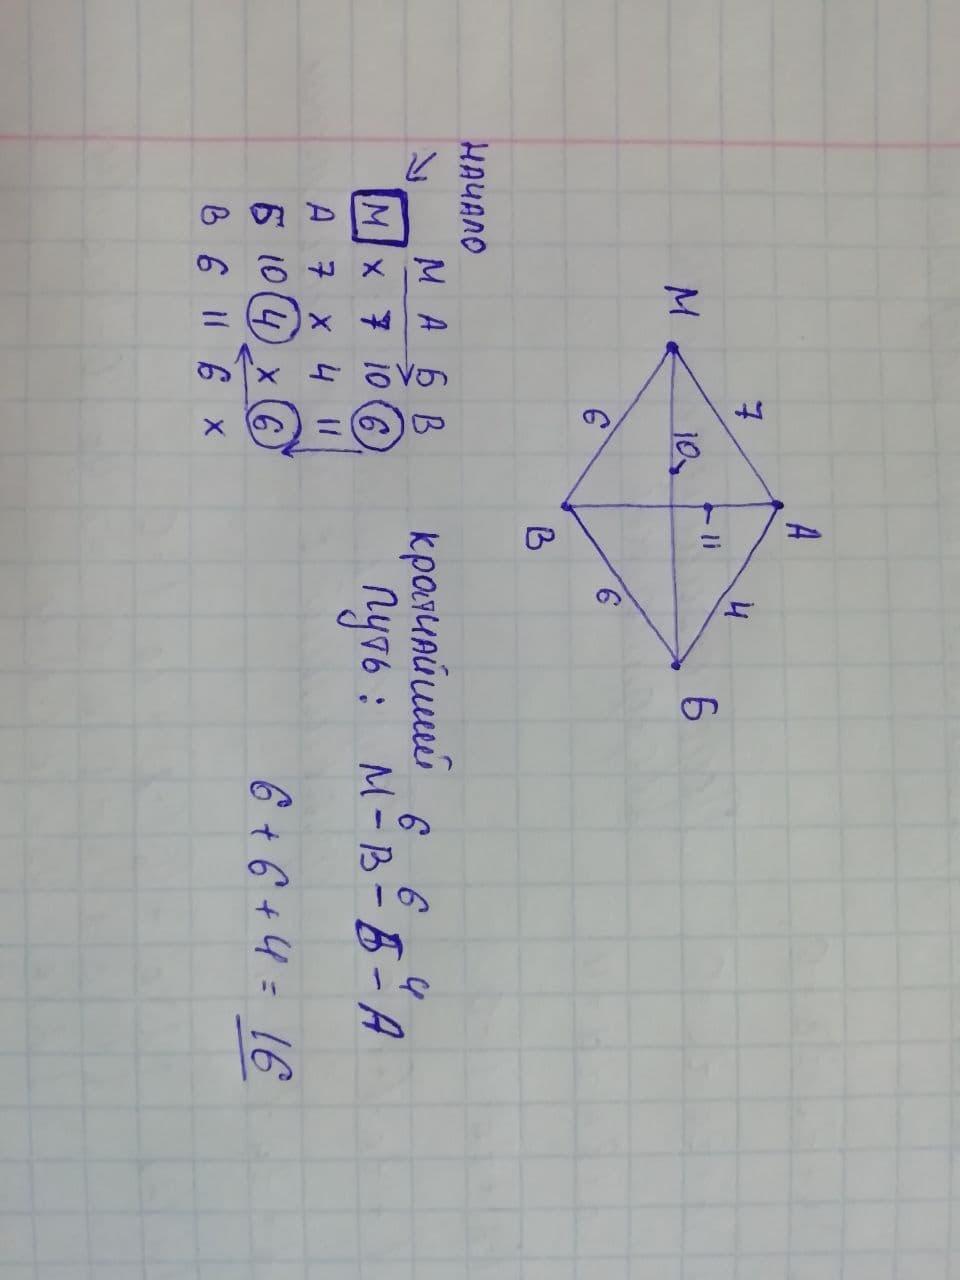 М
7
А
10
11
6
4
В
6
Б
начало
М А Б В
М х 7 10 6
А 7 х 4 11
Б 10 4 х 6
В 6 11 6 х
кратчайший
путь: М - В - Б - А
6 6 4
6 + 6 + 4 = 16